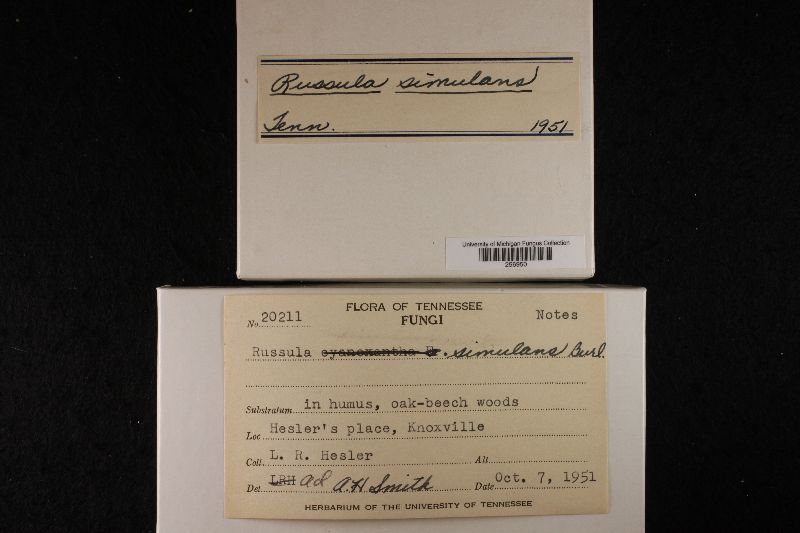 Russula simulans
Tenn. 1951
University of Michigan Fungus Collection
256950
FLORA OF TENNESSEE
No. 20211 FUNGI Notes
Russula cyanoxantha Fr. simulans Burl.
Substratum in humus, oak-beech woods
Loc Hesler's place, Knoxville
Coll. L. R. Hesler Alt.
Det LRH ad A.H Smith Date Oct. 7, 1951
HERBARIUM OF THE UNIVERSITY OF TENNESSEE